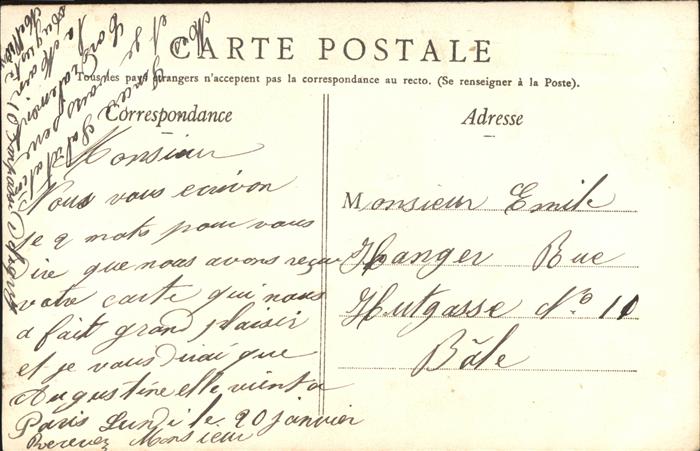 CARTE POSTALE
Tous les pays étrangers n'acceptent pas la correspondance au recto. (Se renseigner à la Poste).
Correspondance
Monsieur
Nous vous ecrivon
je 2 mots pour vous
dire que nous avons reçu
votre carte qui nous
a fait grand plaisir
et je vous dirai que
Augustine elle vient a
Paris Lundi le 20 janvier
Recevez Monsieur
Nos
et je
la Main
Adresse
Monsieur Emile
Hanger Rue
Hutgasse No 11
Bâle